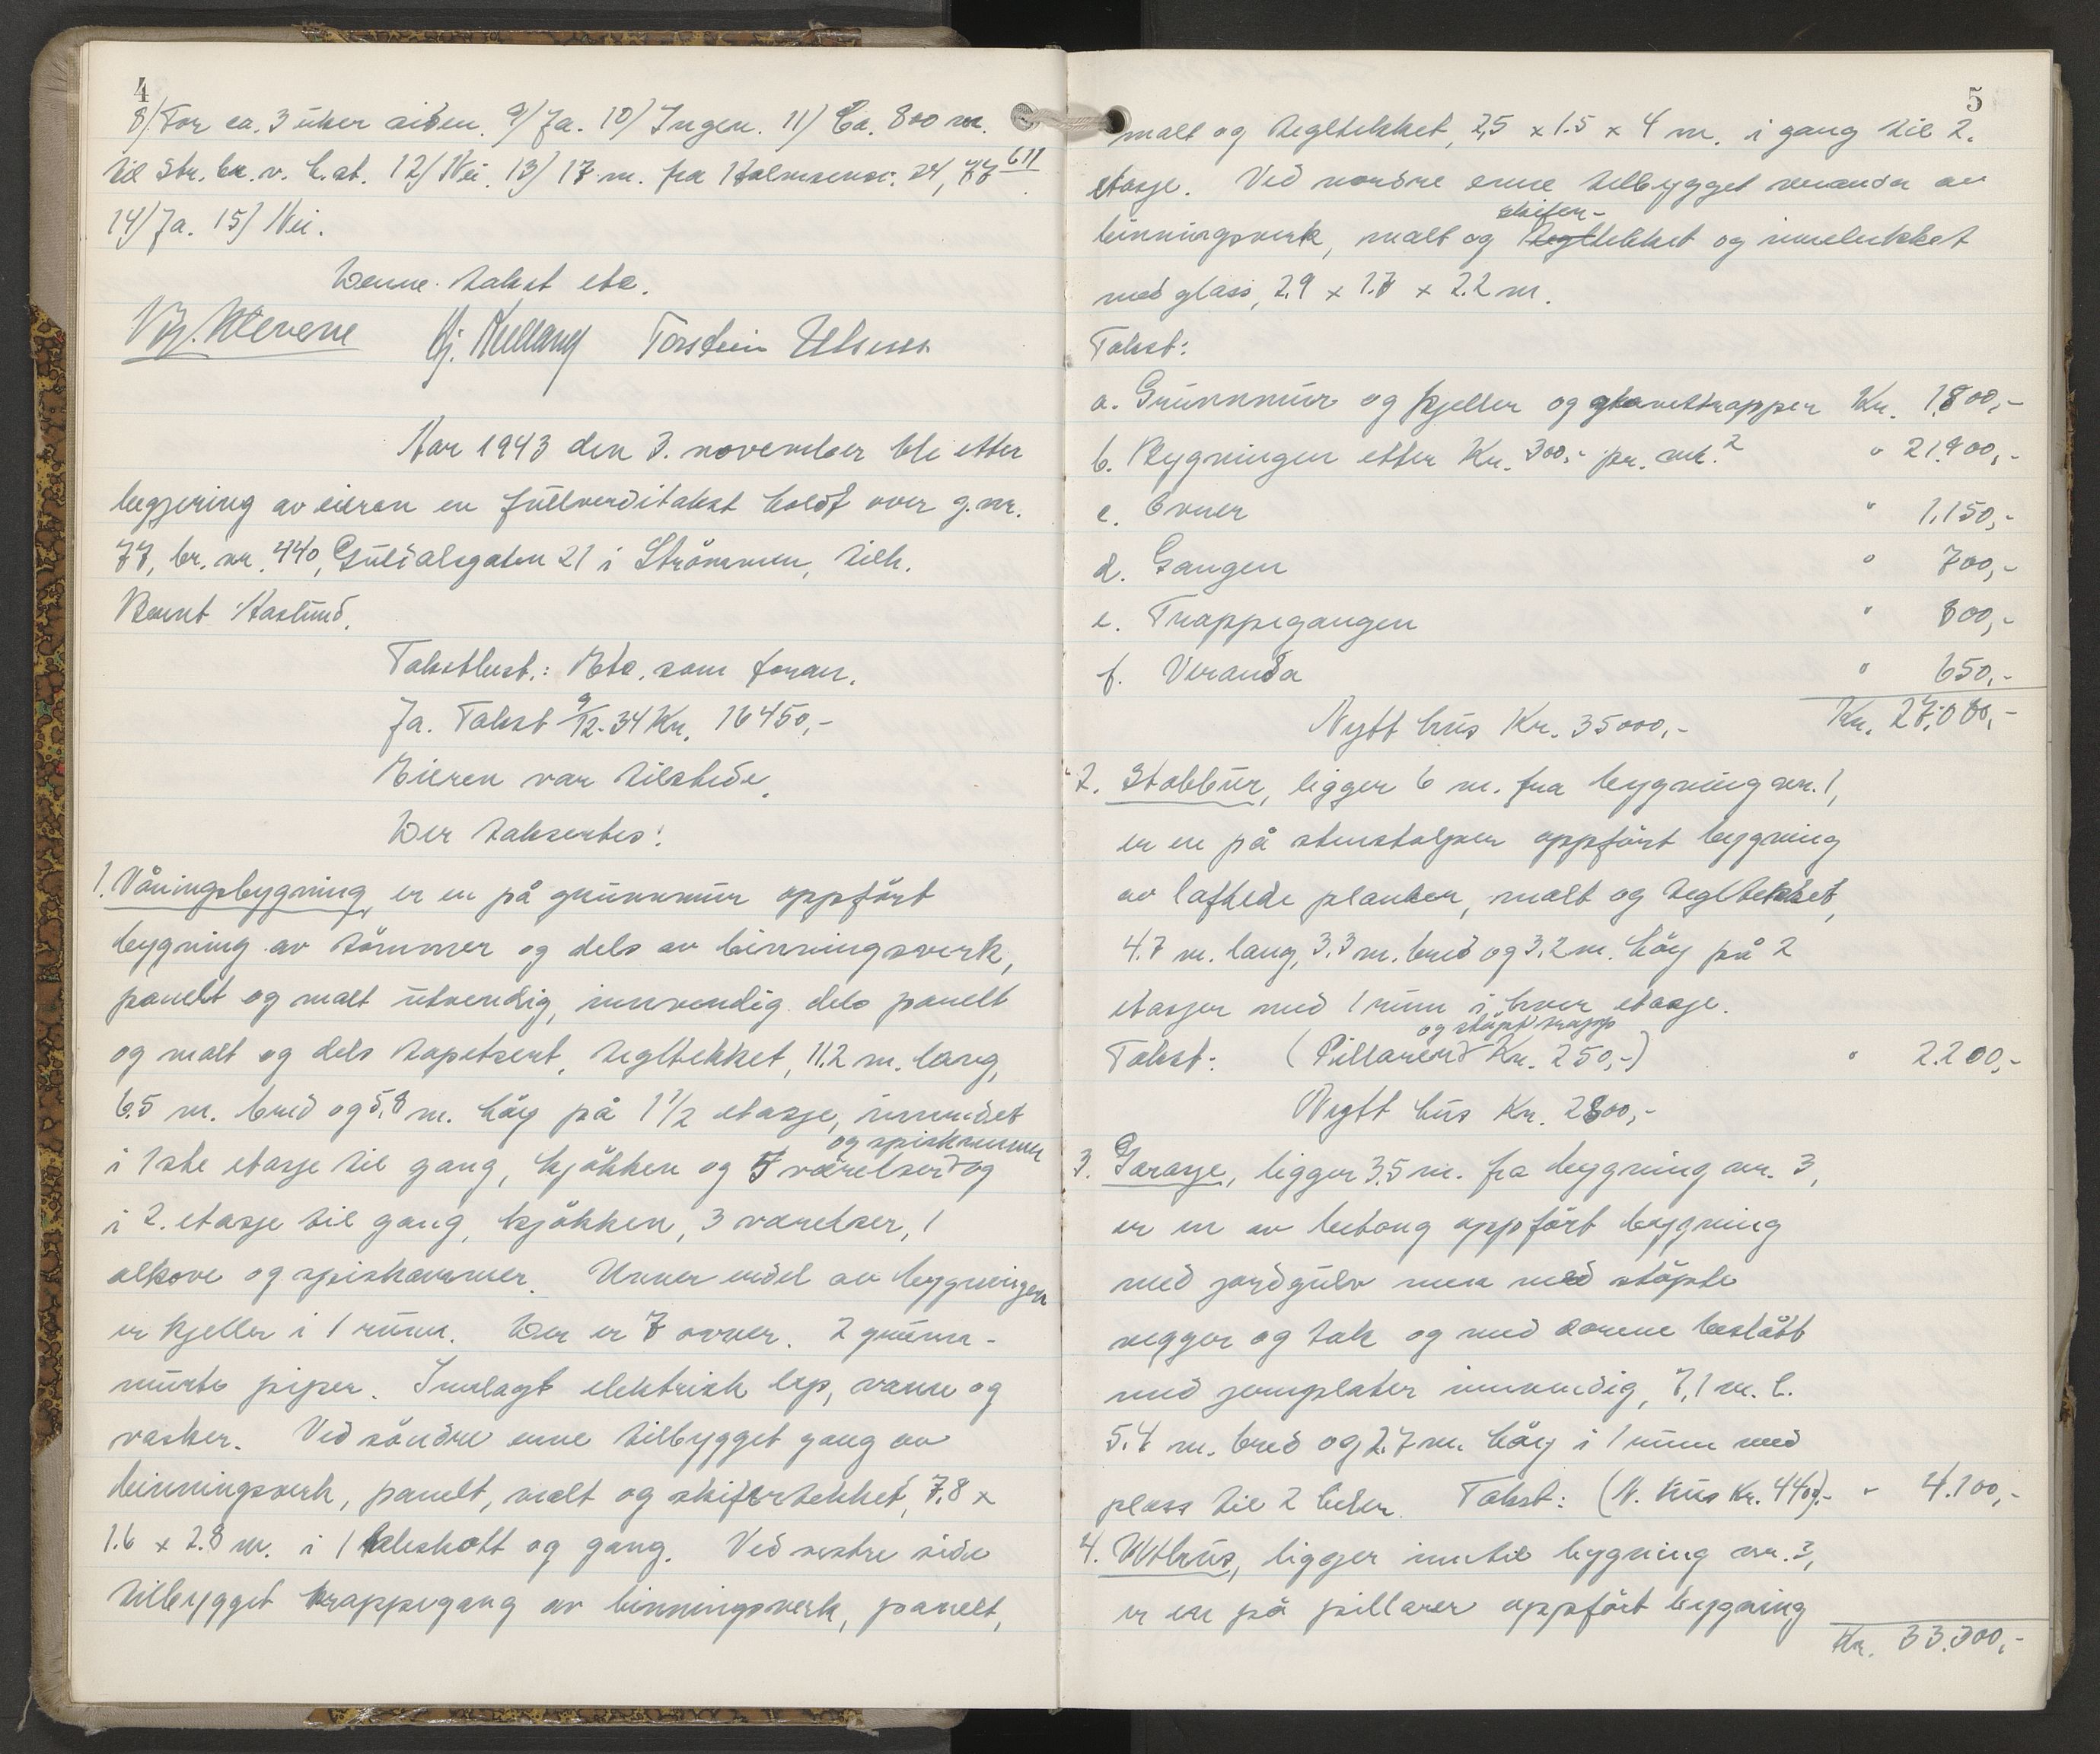 4
8/ For ca. 3 uker siden. 9/ Ja. 10/ Ingen. 11/ Ca. 800 m.
til Str. br. v. h.st. 12/ Nei. 13/ 17 m. fra 24, 77 611.
14/ Ja. 15/ Nei.
Denne takst etc.
Torstein
Aar 1943 den 3. november ble etter
begjering av eieren en fullverditakst holdt over g.nr.
77, br. nr. 440, Guldalsgaten 21 i Strömmen, tilh.
Bernt Haslund.
Takstbest.: Etc. som foran.
Ja. Takst 9/12-34 Kr. 16450,-
Eieren var tilstede.
Der taksertes:
1. Våningsbygning, er en på grunnmur oppfört
bygning av tömmer og dels av binningsverk,
panelt og malt utvendig, innvendig dels panelt
og malt og dels tapetsert, tegltekket, 11.2 m. lang,
6.5 m. bred og 5.8 m. höy på 1 1/2 etasje, innredet
i 1ste etasje til gang, kjökken og 5 værelser og spiskammer og
i 2. etasje til gang, kjökken, 3 værelser, 1
alkove og spiskammer. Unner endel av bygningen
er kjeller i 1 rum. Der er 7 ovner. 2 grunn-
murte piper. Innlagt elektrisk lys, vann og
vasker. Ved söndre enne tilbygget gang av
binningsverk, panelt, malt og skifertekket, 7.8 x
1.6 x 2.8 m. i 1 kleskott og gang. Ved vestre side
tilbygget trappegang av binningsverk, panelt,
5
malt og tegltekket, 2,5 x 1.5 x 4 m. i gang til 2.
etasje. Ved nordre enne tilbygget veranda av
binningsverk, malt og skifer- tekket og innelukket
med glass, 2.9 x 1.7 x 2.2 m.
Takst:
a. Grunnmur og kjeller og trapper Kr. 1.800,-
b. Bygningen etter Kr. 300,- pr. m.2 " 21.900,-
c. Ovner " 1.150,-
d. Gangen " 700,-
e. Trappegangen " 800,-
f. Veranda " 650,-
Nytt hus Kr. 35000,- Kr. 27.000,-
2. Stabbur, ligger 6 m. fra bygning nr. 1,
er en på stenstolper oppfört bygning
av laftede planker, malt og tegltekket,
4.7 m. lang, 3.3 m. bred og 3.2 m. höy på 2
etasjer med 1 rum i hver etasje.
Takst: (Pillarer og stöpt trapp Kr. 250,-) " 2.200,-
Nytt hus Kr. 2800,-
3. Garasje, ligger 3.5 m. fra bygning nr. 3,
er en av betong oppfört bygning
med jordgulv men med stöpte
vegger og tak og med dörene beslått
med jernplater innvendig, 7,1 m. l.
5.4 m. bred og 2.7 m. höy i 1 rum med
plass til 2 biler. Takst: (N. hus Kr. 4400,- " 4.100,-
4. Uthus, ligger inntil bygning nr. 3,
er en på pillarer oppfört bygning
Kr. 33.300,-